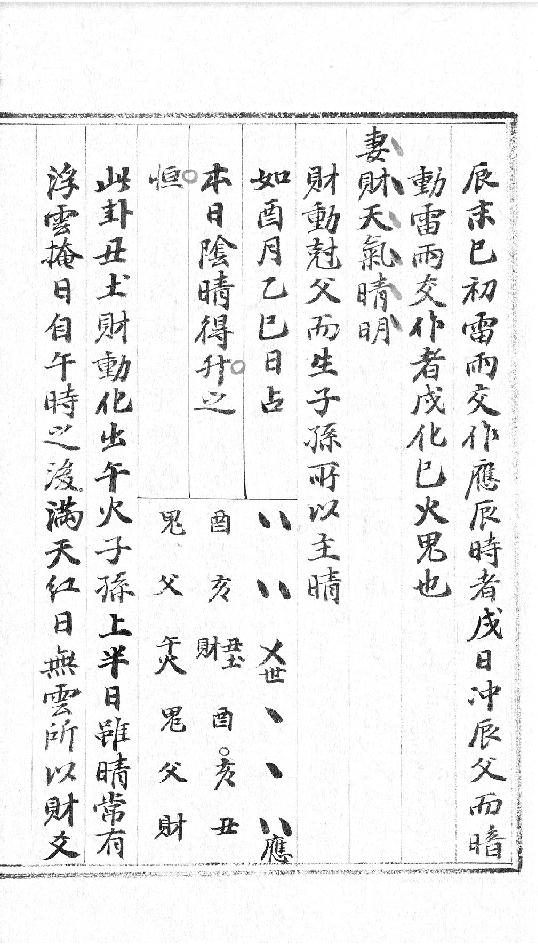 辰末巳初雷雨交作應辰時者戌日冲辰父而暗
動雷雨交作者戌化巳火鬼也
妻財天氣晴明
財動尅父而生子孫所以主晴
如酉月乙巳日占
本日陰晴得升之
恒
八 八 乂世 丶 丶 八應
酉 亥 丑土財 酉 亥 丑
鬼 父 午火 鬼 父 財
此卦丑土財動化出午火子孫上半日雖晴常有
浮雲掩日自午時之後滿天紅日無雲所以財爻